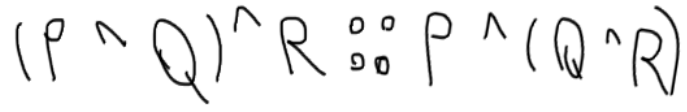 (P ^ Q) ^ R :: P ^ (Q ^ R)